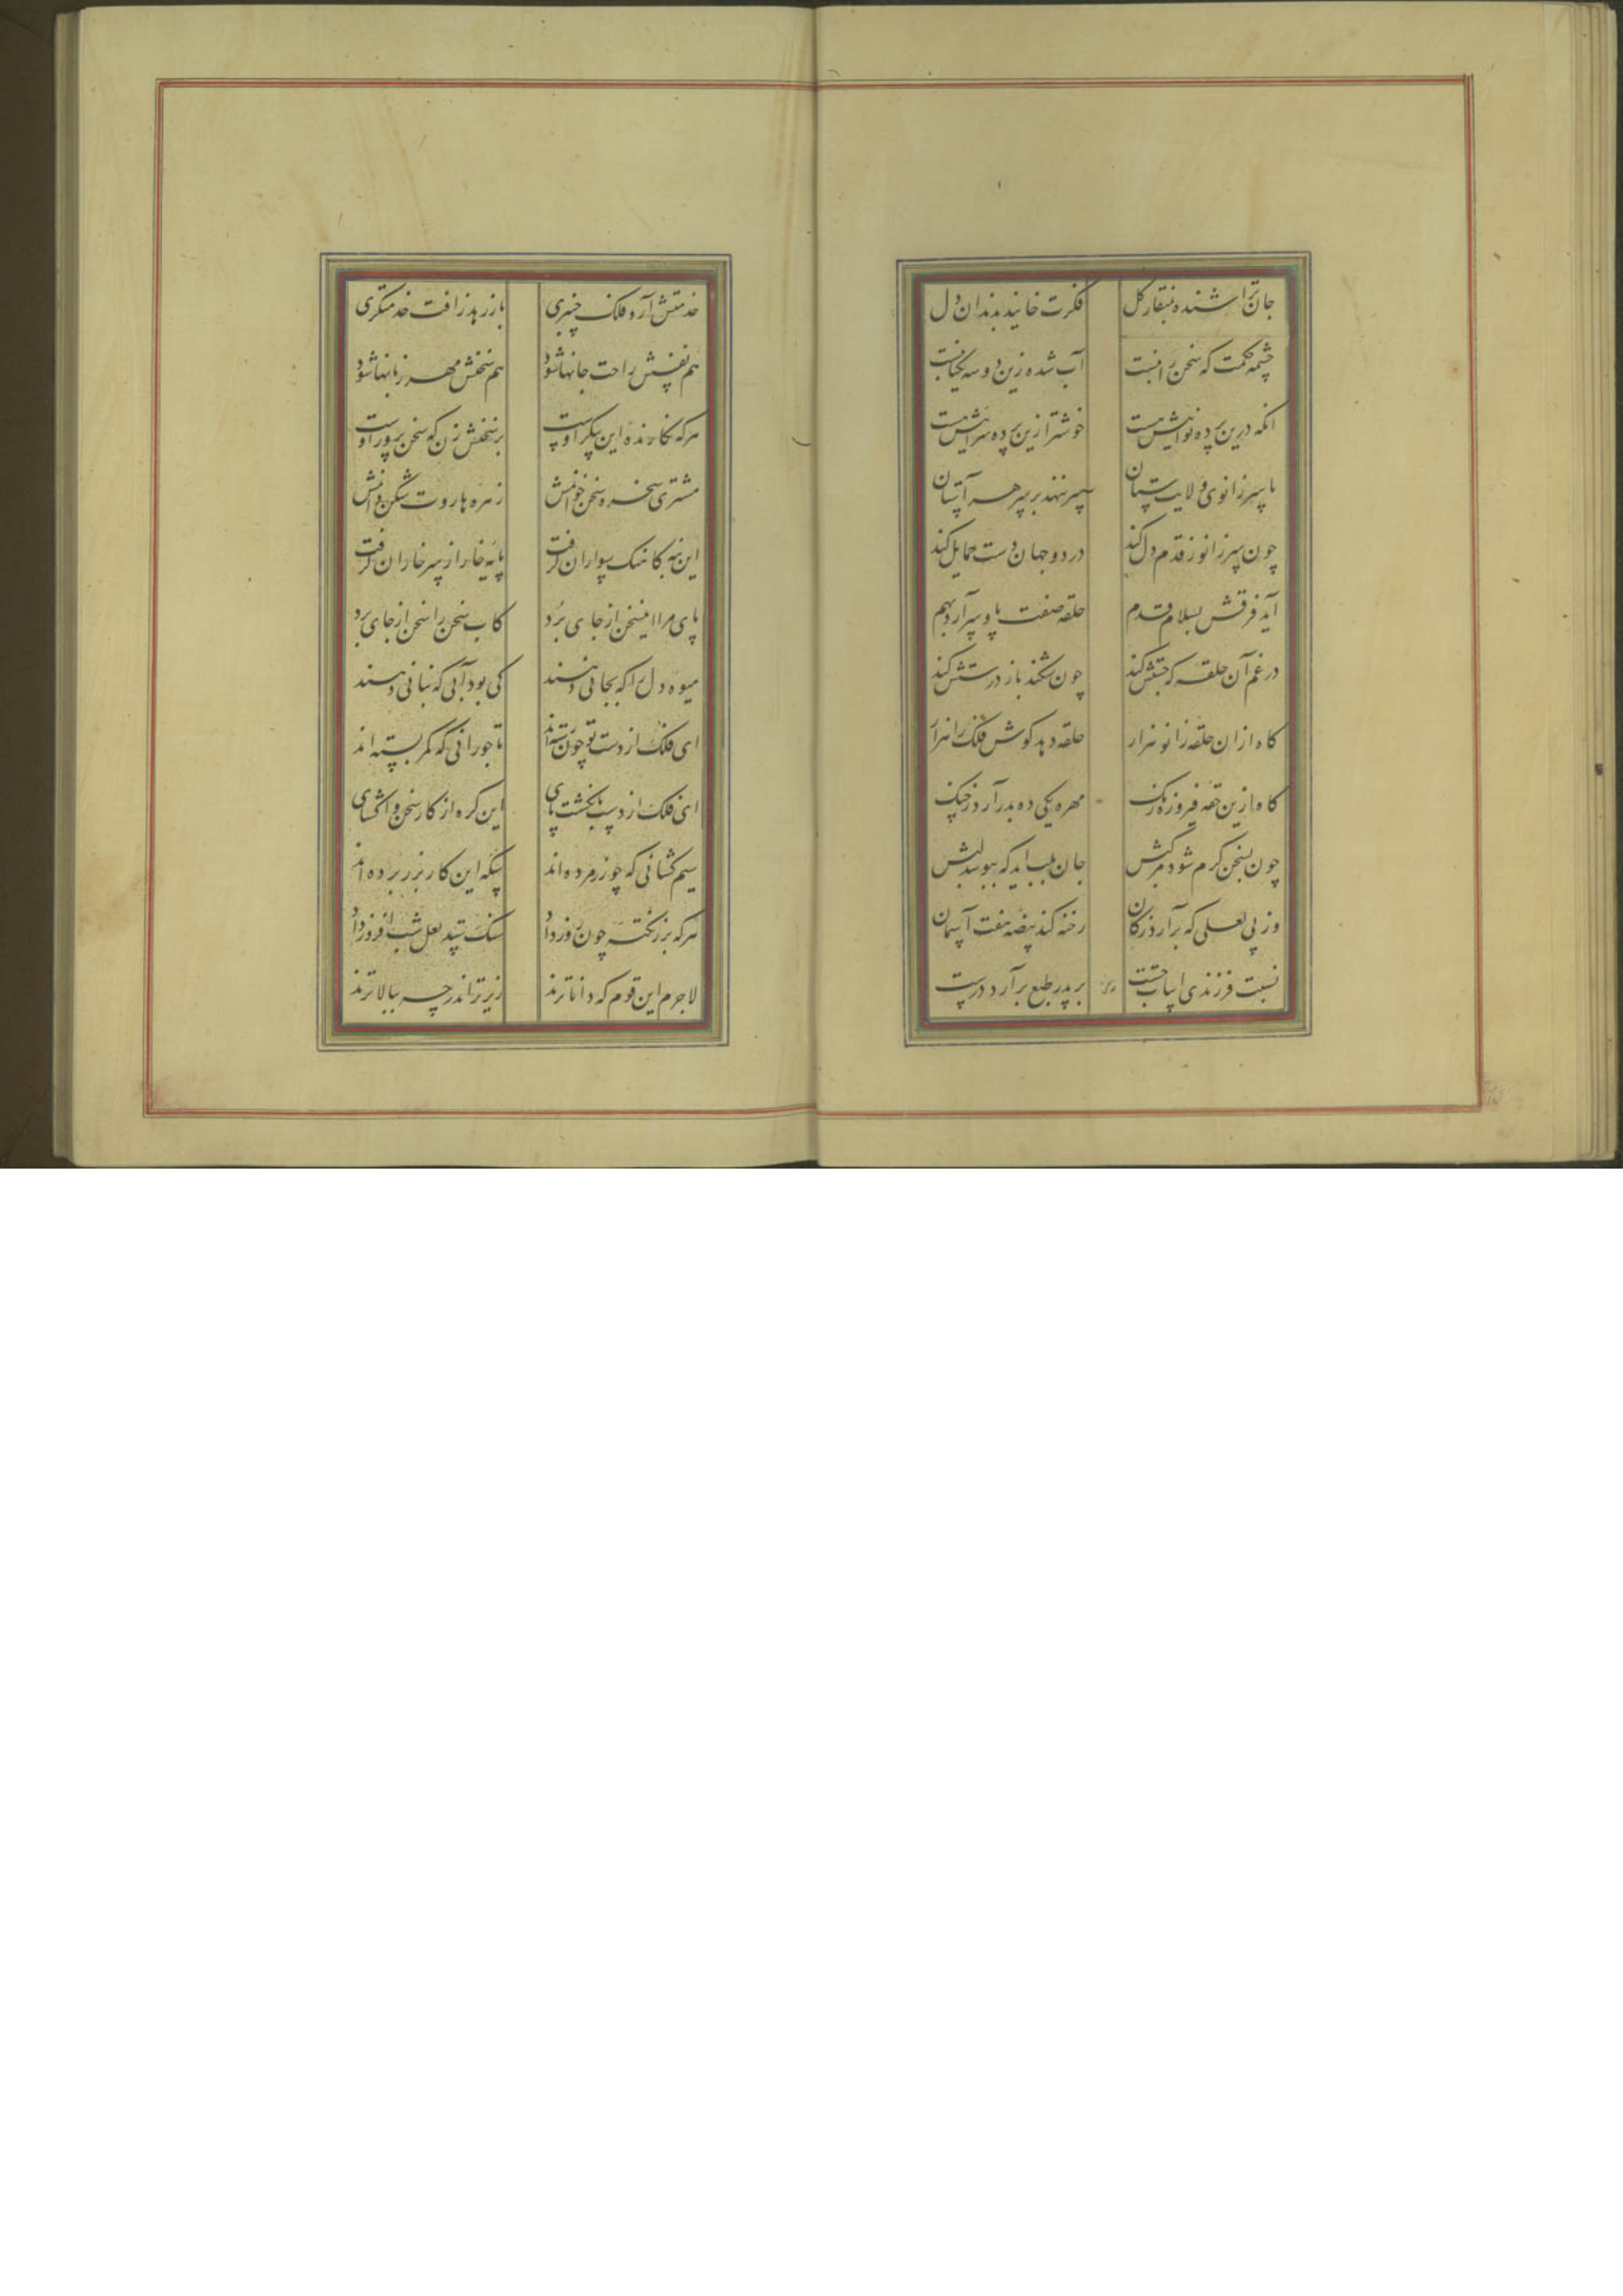 جان تراشنده بمنقار کل فکرت خاییده بدندان دل
چشمه حکمت که سخن رانیست آب شده زین دو سه یکتا نیست
انکه درین پرده نوائیش هست خوشتر ازین پرده سرائیش هست
با سر زانوی ولایت ستان سر ننهد بر سر هر آستان
چون سر زانو ز قدم دل کند در دو جهان دست حمایل کند
آید فرقش بسلام قدم حلقه صفت پا و سر آرد بهم
در غم آن حلقه که جستش کند چون شکند باز درستش کند
کاه ازان حلقه زانو قرار حلقه دهد کوش فلک را هزار
کاه ازین حقه فیروزه رنک مهره یکی ده بدر آرد ز چنک
چون بسخن کرم شود مرکبش جان بلب اید که ببوسد لبش
وز پی لعلی که برآرد ز کان رخنه کند بیضه هفت آسمان
نسبت فرزندی ابیات چست بر پدر طبع برآرد درست
خدمتش آرد فلک چنبری باز رهد زافت خدمتکری
هم نفسش راحت جانها شود هم سخنش مهر زبانها شود
هرکه نکارنده این پیکر اوست بر سخنش زن که سخن پرور اوست
مشتری سخره سخن خوانمش زهره هاروت شکن دانمش
این بنه کاهنک سواران کرفت پایه خار از سر خاران کرفت
پای مرا این سخن از جای برد کاب سخن را سخن از جای برد
میوه دل را که بجانی دهند کی بود آبی که بنانی دهند
ای فلک از دست تو چون رسته اند تاجورانی که کمر بسته اند
ای فلک از دست بنکشت پای این کره از کار سخن واکشای
سیم کشانی که چو زر مرده اند سکه این کار بزر برده اند
هرکه بزر نکته چون روز داد سنک ستد لعل شب افروز داد
لاجرم این قوم که داناترند زیرترند ار چه ببالا ترند